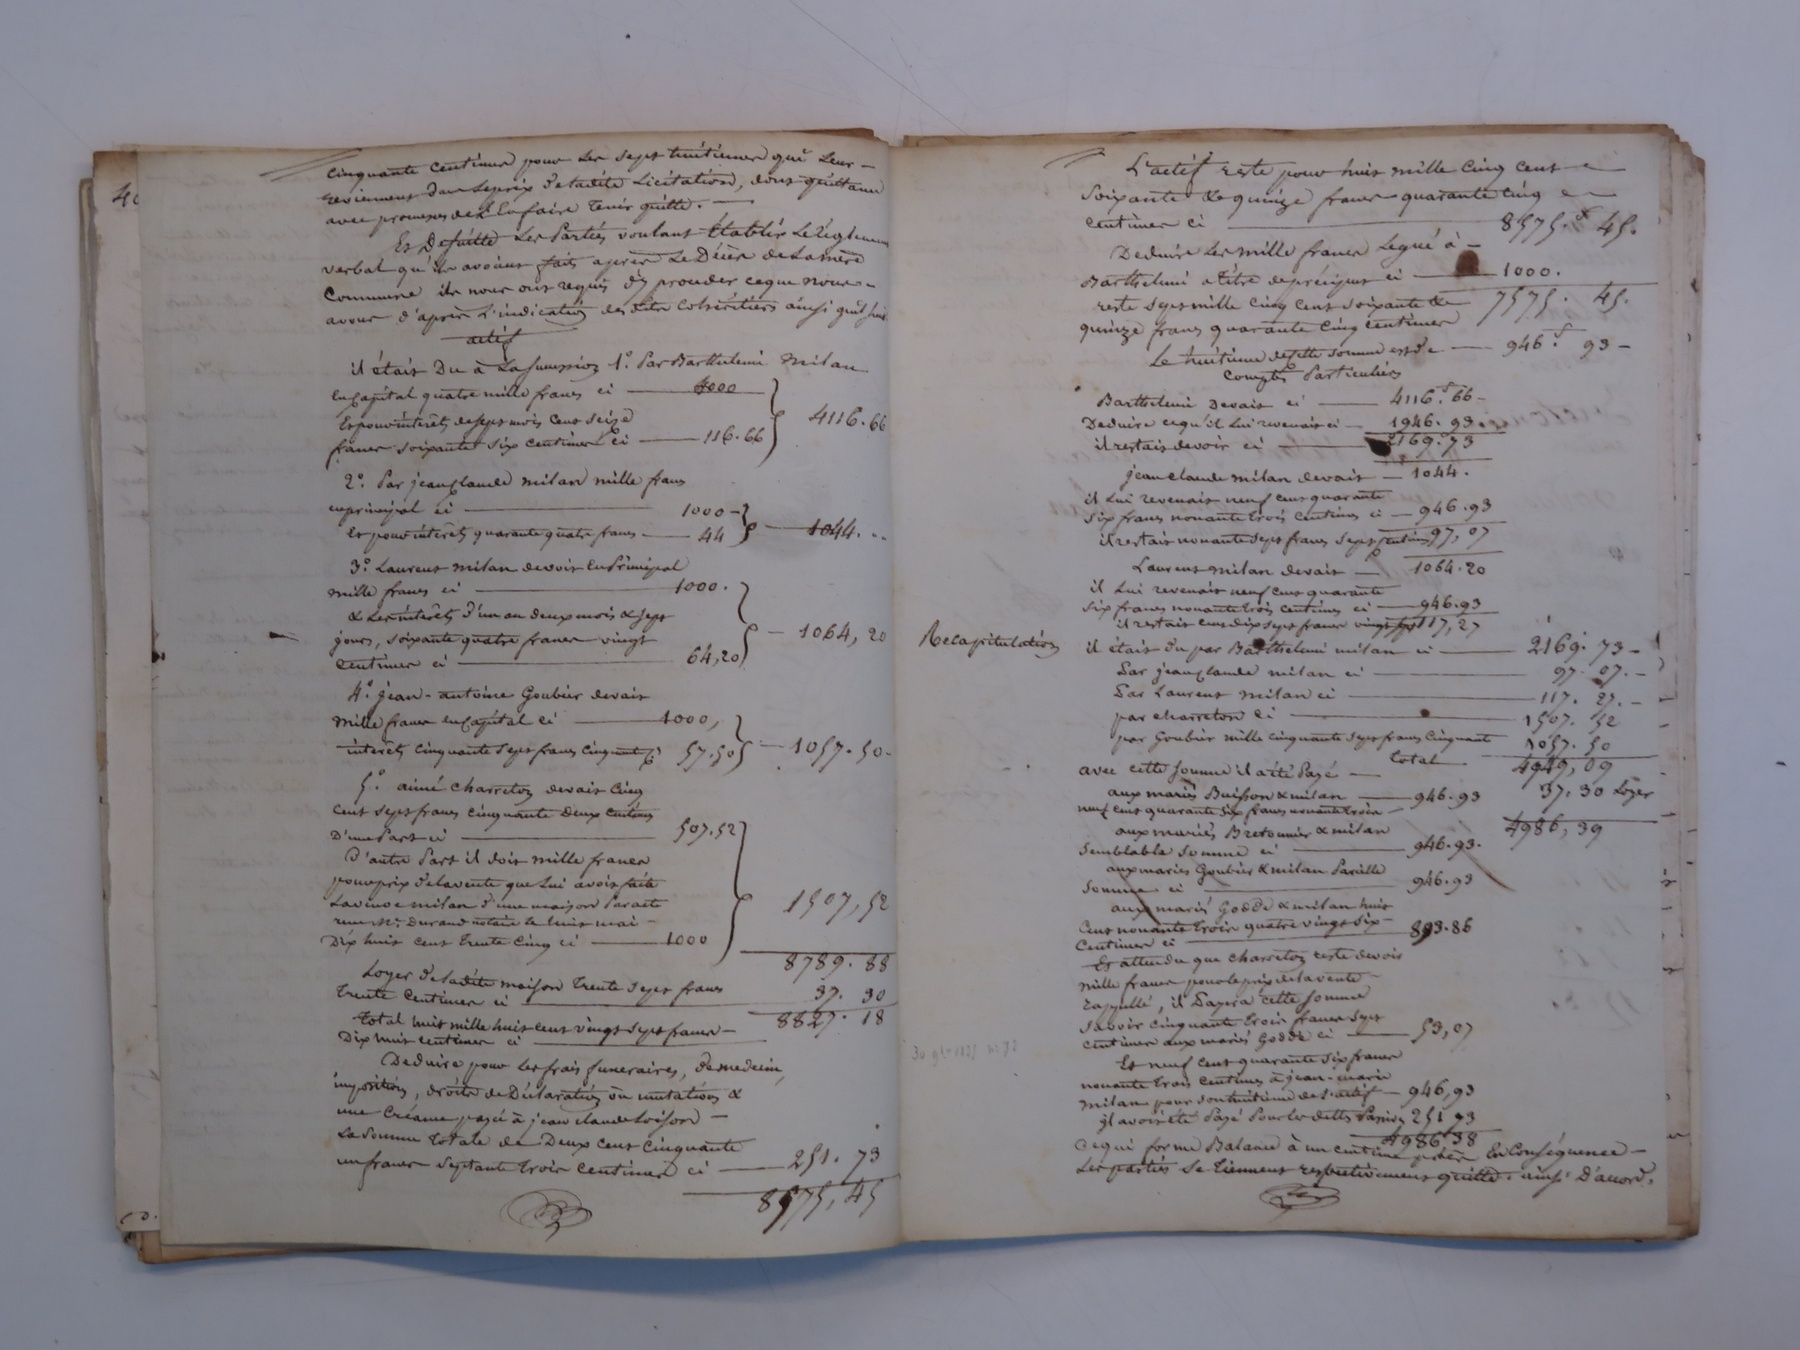 cinquante centimes pour les sept huitiemes qui leur
reviennent dans le prix de ladite Licitation, dont quittance
avec promesse de l'En faire Tenir quitte.
Et De suitte les Parties voulant Etablir Le Reglement
verbal qu'ils avoient fait apres Le Décès de La mere
Commune ils nous ont requis d'y proceder ce que nous
avons d'apres L'indication des dits Cohéritiers ainsi qu'il suit
actif
il était Du à La succession 1° Par Barthelemi Milan
En Capital quatre mille francs ci 4000
Et pour intérêts de sept mois cent seize
francs soixante six centimes ci 116.66
4116.66
2° Par jean claude milan mille francs
en principal ci 1000
Et pour intérêts quarante quatre francs 44
1044. ..
3° Laurent milan devoit En Principal
mille francs ci 1000.
& Les intérêts d'un an deux mois & sept
jours, soixante quatre francs vingt
centimes ci 64,20
1064,20
4° jean-antoine Goubier devait
mille francs en Capital ci 1000,
intérêts cinquante sept francs cinquante ci 57.50
1057.50
5° aimé charreton devait Cinq
cent sept francs cinquante deux centimes
D'une Part ci 507.52
D'autre Part il doit mille francs
pour prix de la vente que lui avoit faite
La veuve milan d'une maison Par acte
reçu Me Durand notaire le huit mai
Dix huit cent trente cinq ci 1000
1507,52
8789.88
Loyer de ladite maison Trente sept francs
Trente Centimes ci 37.30
Total huit mille huit cent vingt sept francs 8827.18
Dix huit centimes ci
Deduire pour les frais funeraires, de medecin,
imposition, droits de Déclaration ou mutation &
une Créance payée à jean claude Loison
La Somme Totale de Deux cent Cinquante
un francs septante trois Centimes ci 251.73
8575,45
L'actif reste pour huit mille Cinq cent
soixante & quinze francs quarante cinq
centimes ci 8575.f 45.
Deduire Les mille francs Legué à
Barthelemi a titre de préciput ci 1000.
reste sept mille Cinq cent soixante & 7575. 45.
quinze francs quarante Cinq centimes
Le huitieme de cette somme est de 946.f 93
Comptes Particuliers
Barthelemi Devait ci 4116.f 66
Deduire ce qu'il Lui revenait ci 1946.93.
il restait devoir ci 2169.73
jean claude milan devait 1044.
il Lui revenait neuf cent quarante
six francs nonante trois centimes ci 946.93
il restait nonante sept francs sept centimes 97,07
Laurent milan devait 1064.20
il Lui revenait neuf cent quarante
six francs nonante trois centimes ci 946.93
il restait cent dix sept francs vingt sept 117,27
Recapitulation
il était du par Barthelemi milan ci 2169.73
Par jean claude milan ci 97.07.
Par Laurent milan ci 117.27.
par charreton ci 1507.52
par Goubier mille cinquante sept francs cinquante 1057.50
Total 4949,09
avec cette somme il a été Payé
37.30 Loyer
aux mariés Buisson & milan 946.93
neuf cent quarante six francs nonante trois
4986,39
aux mariés Bretonnier & milan
semblable somme ci 946.93.
aux mariés Goubier & milan Pareille
somme ci 946.93
aux mariés Godde & milan huit
Cent nonante trois quatre vingt six
Centimes ci 893.86
Et attendu que charreton reste devoir
mille francs pour le prix de la vente
rappellé, il Payera cette somme
savoir cinquante trois francs sept
centimes aux mariés Godde ci 53,07
Et neuf cent quarante six francs
nonante trois centimes à jean-marie
milan pour son huitieme de l'actif 946,93
il avoit été Payé Pour les dettes Passives 251.73
4986.38
ce qui forme Balance à un centime près En Conséquence
les parties se Tiennent respectivement quitte. ainsi D'accord.